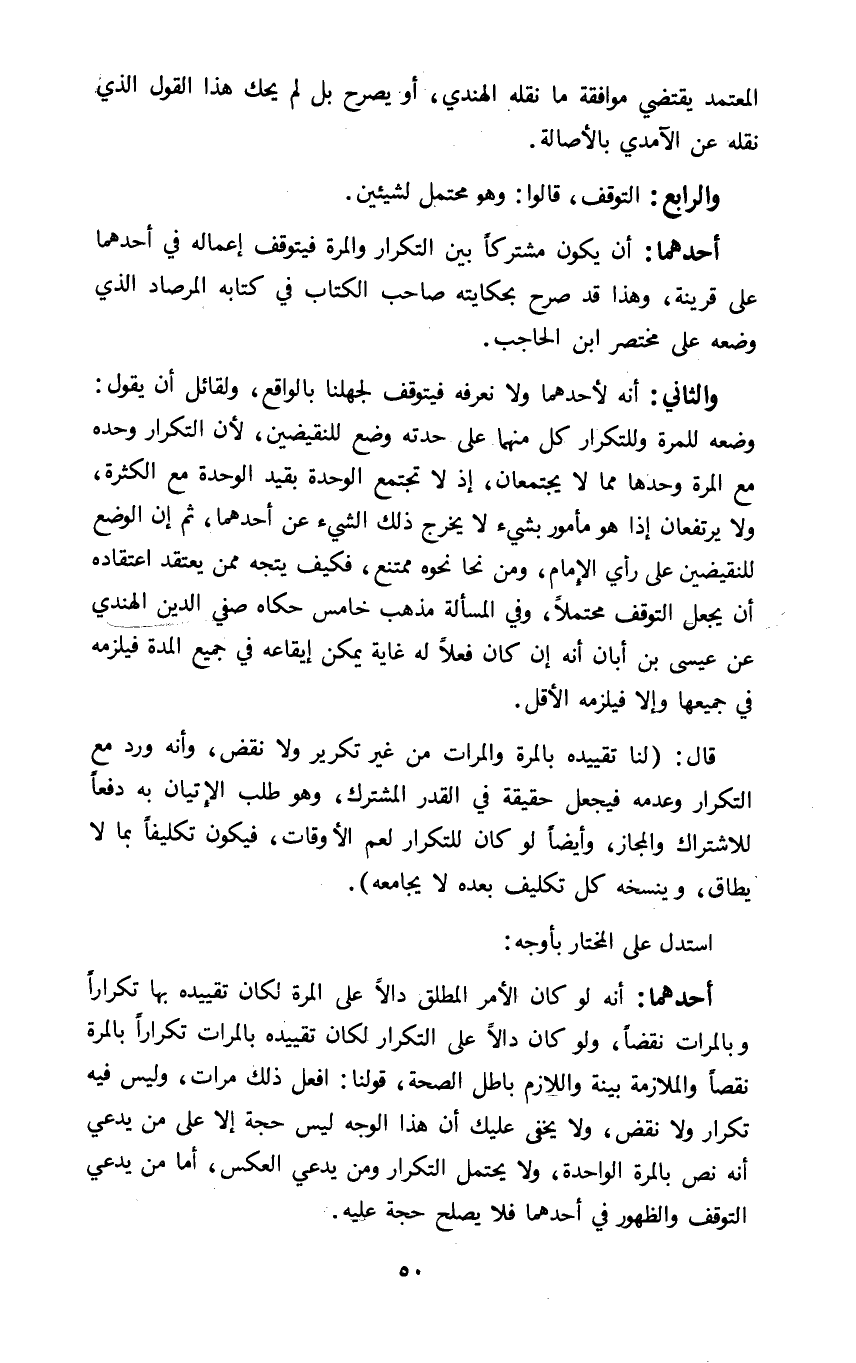 المعتمد يقتضي موافقة ما نقله الهندي، أو يصرح بل لم يحك هذا القول الذي
نقله عن الآمدي بالأصالة.
والرابع: التوقف، قالوا: وهو محتمل لشيئين.
أحدهما: أن يكون مشتركاً بين التكرار والمرة فيتوقف إعماله في أحدهما
على قرينة، وهذا قد صرح بحكايته صاحب الكتاب في كتابه المرصاد الذي
وضعه على مختصر ابن الحاجب.
والثاني: أنه لأحدهما ولا نعرفه فيتوقف لجهلنا بالواقع، ولقائل أن يقول:
وضعه للمرة وللتكرار كل منهما على حدته وضع للنقيضين، لأن التكرار وحده
مع المرة وحدها مما لا يجتمعان، إذ لا تجتمع الوحدة بقيد الوحدة مع الكثرة،
ولا يرتفعان إذا هو مأمور بشيء لا يخرج ذلك الشيء عن أحدهما، ثم إن الوضع
للنقيضين على رأي الإمام، ومن نحا نحوه ممتنع، فكيف يتجه ممن يعتقد اعتقاده
أن يجعل التوقف محتملاً، وفي المسألة مذهب خامس حكاه صفي الدين الهندي
عن عيسى بن أبان أنه إن كان فعلاً له غاية يمكن إيقاعه في جميع المدة فيلزمه
في جميعها وإلا فيلزمه الأقل.
قال: (لنا تقييده بالمرة والمرات من غير تكرير ولا نقض، وأنه ورد مع
التكرار وعدمه فيجعل حقيقة في القدر المشترك، وهو طلب الإتيان به دفعاً
للاشتراك والمجاز، وأيضاً لو كان للتكرار لعم الأوقات، فيكون تكليفاً بما لا
يطاق، وينسخه كل تكليف بعده لا يجامعه).
استدل على المختار بأوجه:
أحدهما: أنه لو كان الأمر المطلق دالاً على المرة لكان تقييده بها تكراراً
وبالمرات نقضاً، ولو كان دالاً على التكرار لكان تقييده بالمرات تكراراً بالمرة
نقصاً والملازمة بينة واللازم باطل الصحة، قولنا: افعل ذلك مرات، وليس فيه
تكرار ولا نقض، ولا يخفى عليك أن هذا الوجه ليس حجة إلا على من يدعي
أنه نص بالمرة الواحدة، ولا يحتمل التكرار ومن يدعي العكس، أما من يدعي
التوقف والظهور في أحدهما فلا يصلح حجة عليه.
٥٠